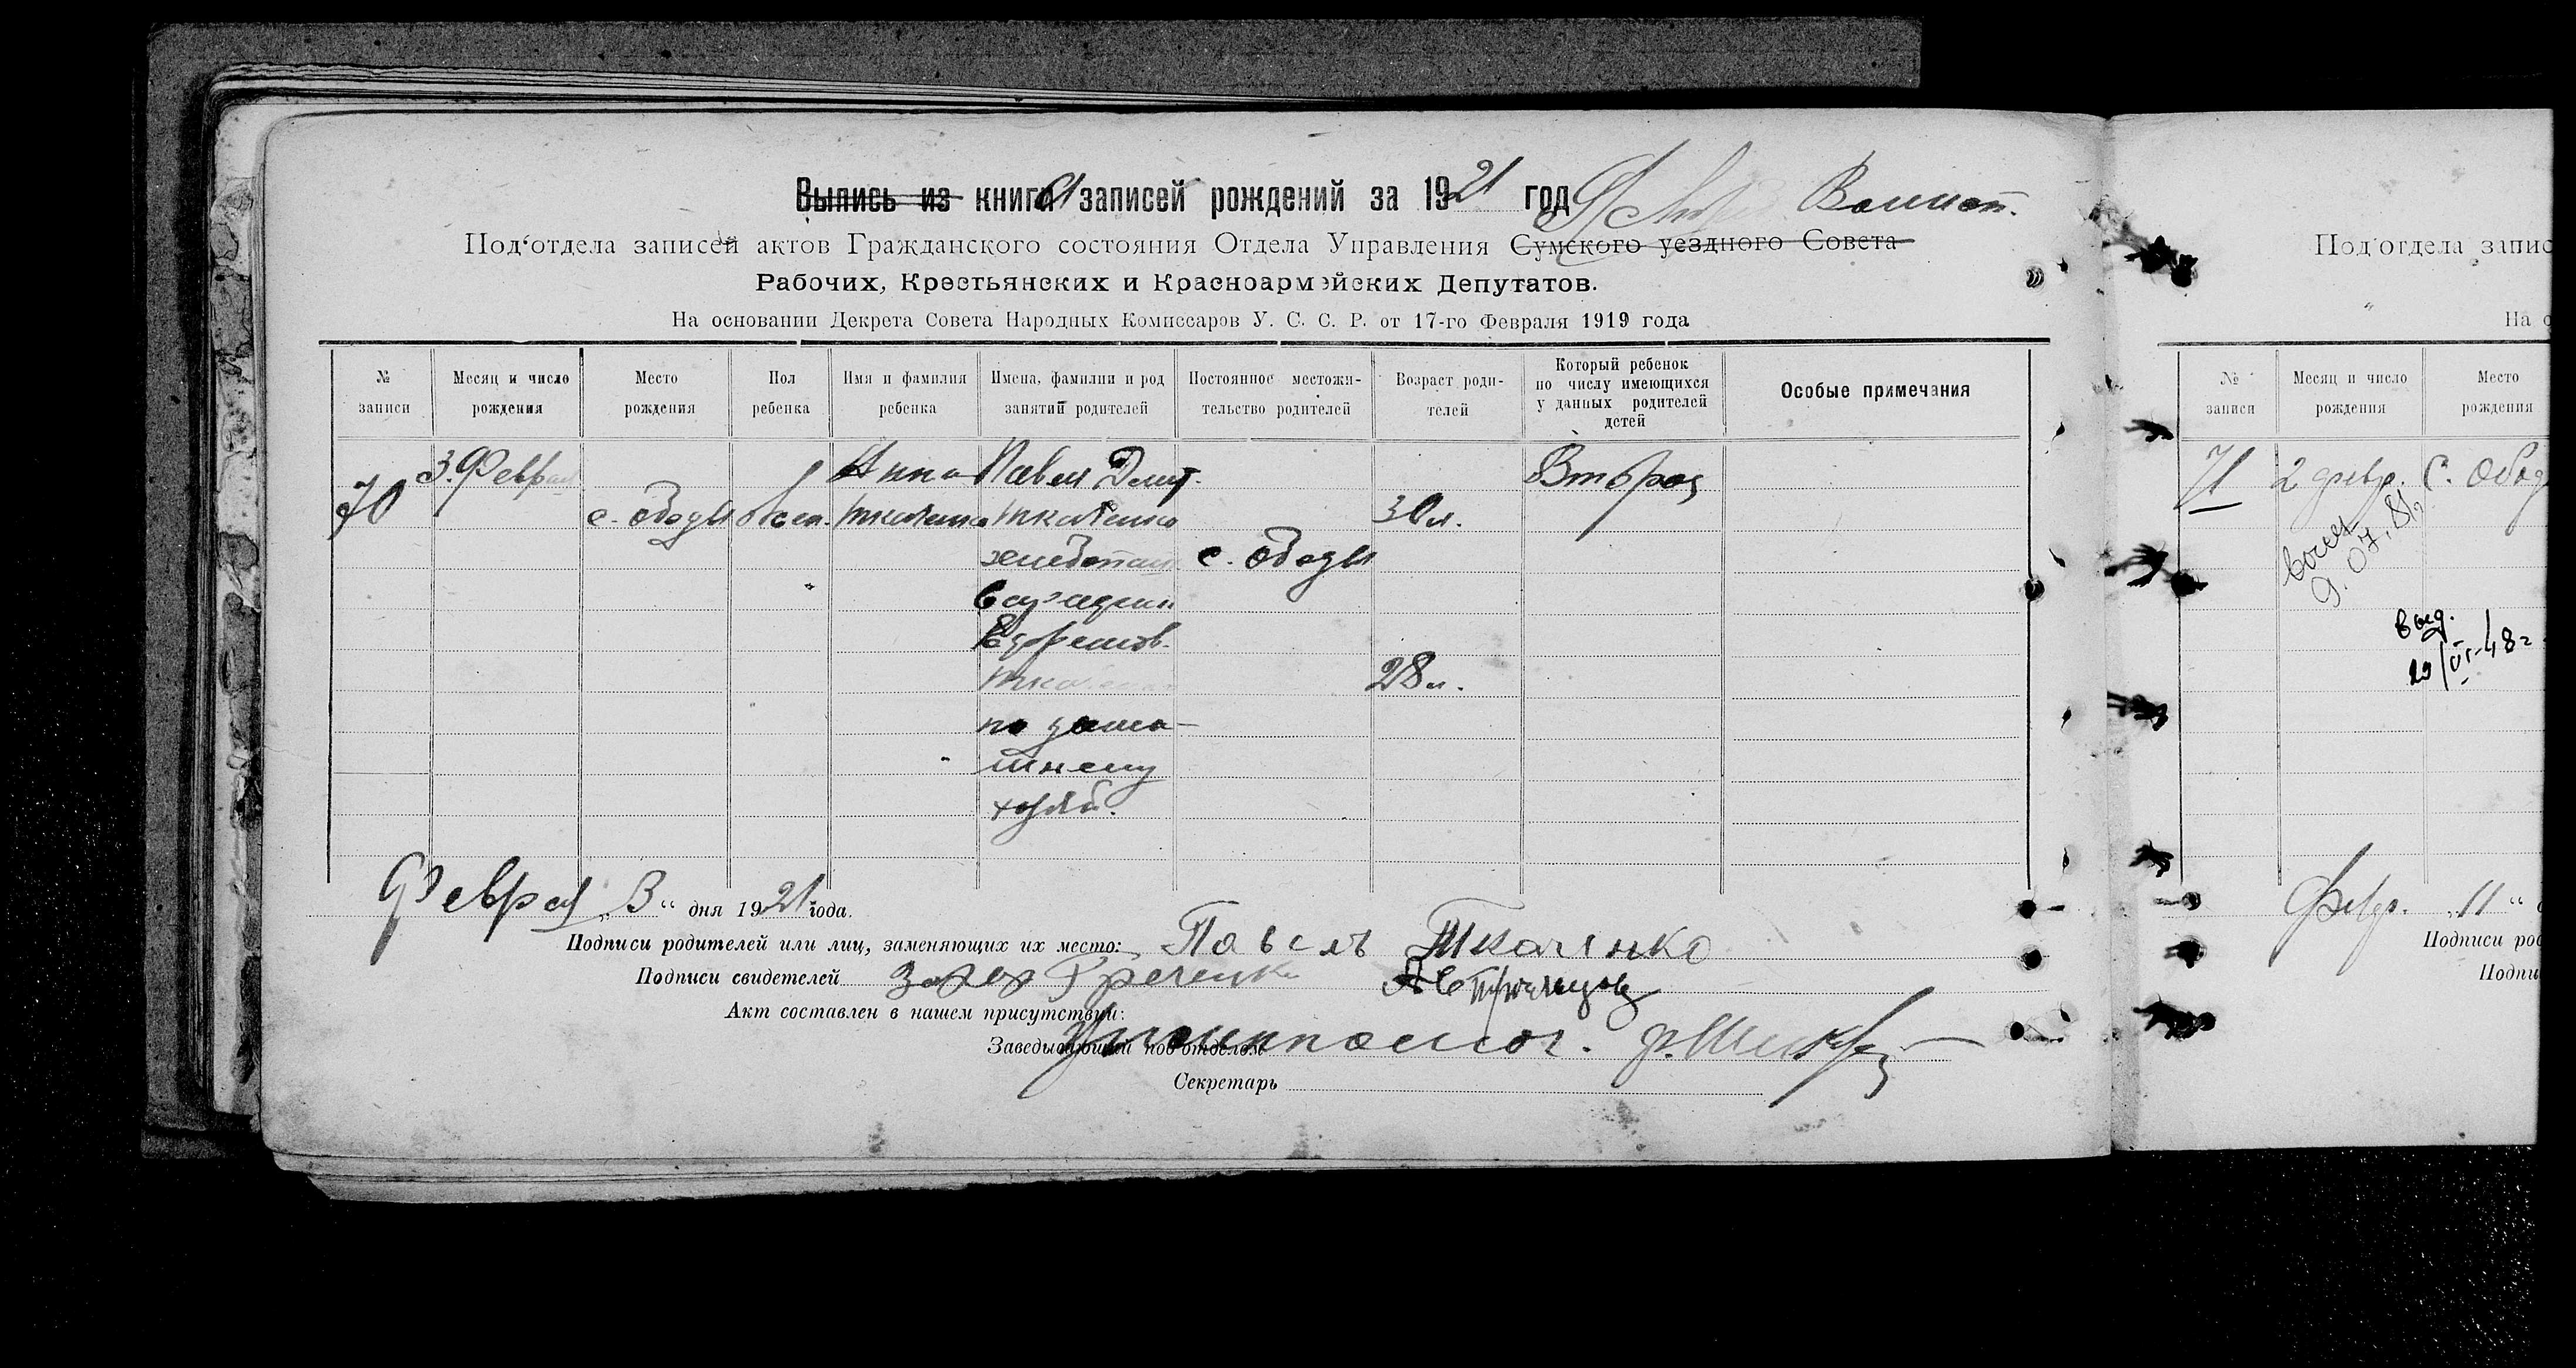 Выпись из книги записей рождений за 1921 год
Под'отдела записей актов Гражданского состояния Отдела Управления Сумского уездного Совета
Рабочих, Крестьянских и Красноармейских Депутатов.
На основании Декрета Совета Народных Комиссаров У. С. С. Р. от 17-го Февраля 1919 года
№ записи
Месяц и число рождения
Место рождения
Пол ребенка
Имя и фамилия ребенка
Имена, фамилии и род занятий родителей
Постоянное местожительство родителей
Возраст родителей
Который ребенок по числу имеющихся у данных родителей детей
Особые примечания
70
3 Феврал
с. Ободы
жен.
Анна
Ткаченко
Павел Дмит.
Ткаченко
хлебопаш
Ефремов.
по дома-
шнему
хозяй.
с. Ободы
30 л.
28 л.
Вторая
Феврал „3“ дня 1921 года.
Подписи родителей или лиц, заменяющих их место: Павелъ Ткаченко
Подписи свидетелей
Акт составлен в нашем присутствии:
Заведывающий под'отделом
Секретарь
Под'отдела запис
На о
№ записи
Месяц и число рождения
Место рождения
71
2 февр.
с. Обод
выд.
Февр. „11“
Подписи род
Подпи